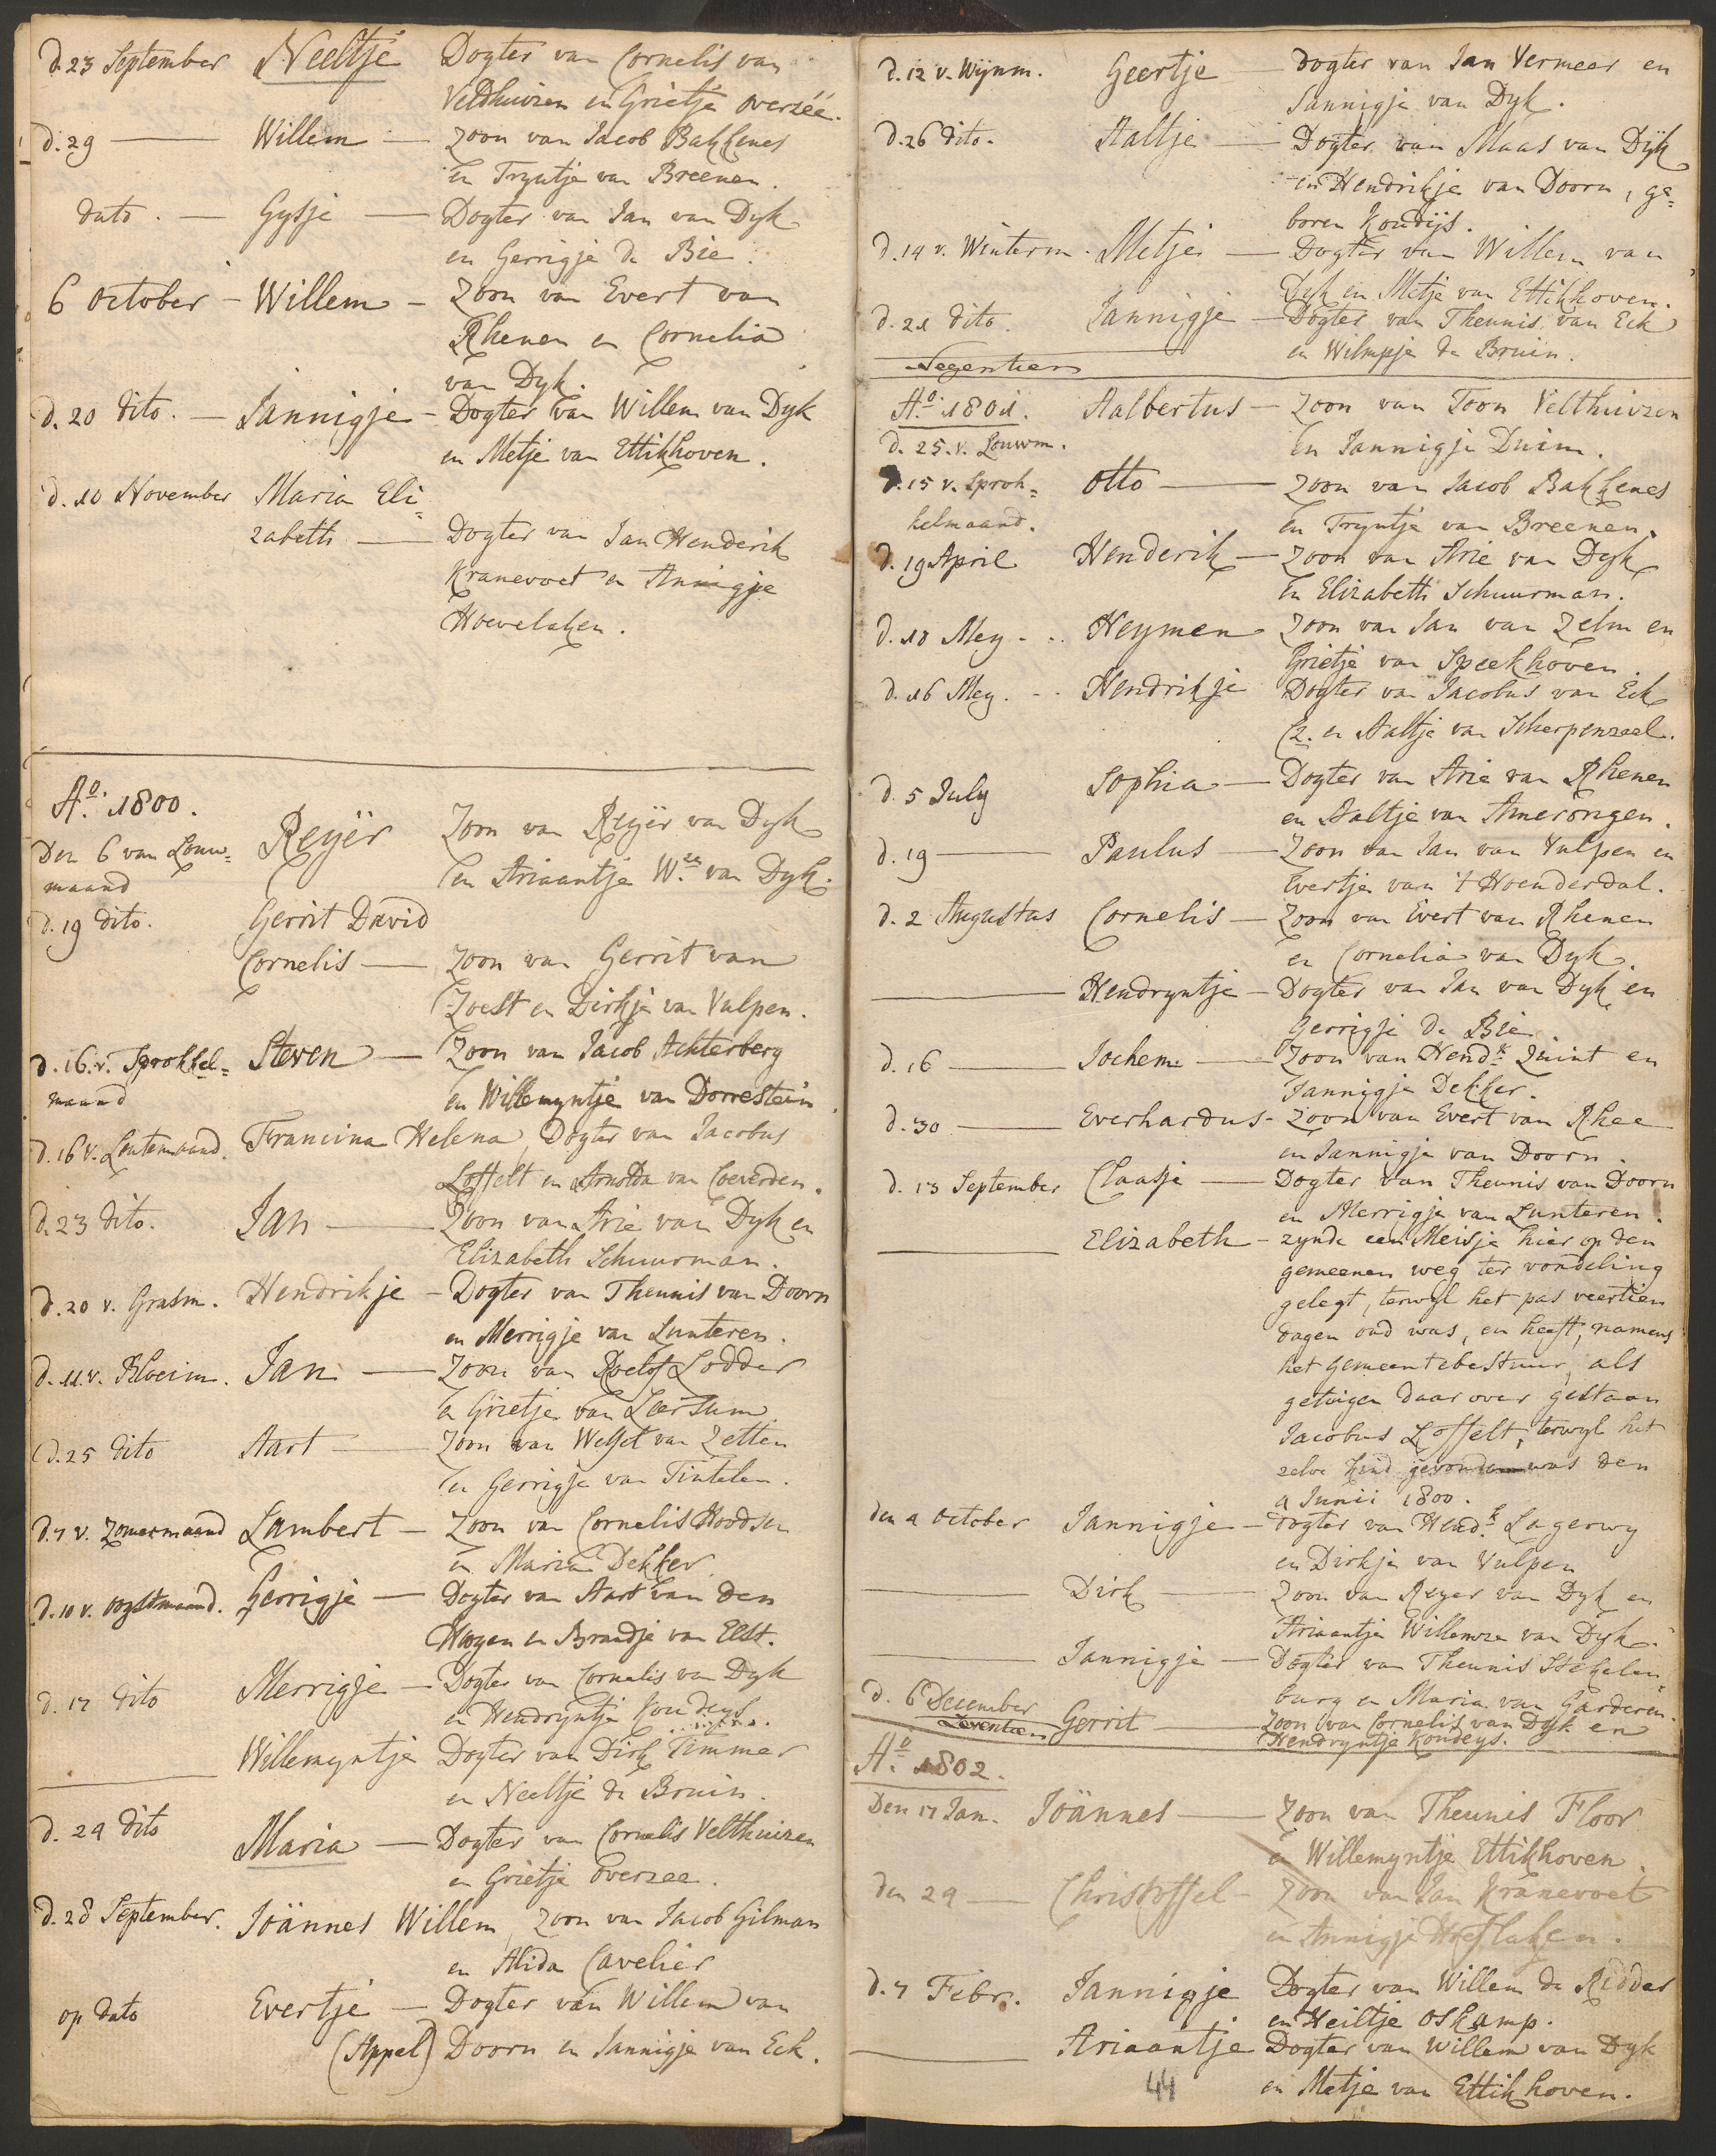 d. 23 September Neeltje Dogter van Cornelis van
Veldhuizen en Grietje overzéé.
d. 29 — Willem — Zoon van Jacob Bakkenes
en Tryntje van Breenen.
dato. — Gysje — Dogter van Jan van Dyk
en Gerrigje de Bie.
6 October — Willem — Zoon van Evert van
Rhenen en Cornelia
van Dyk.
d. 20 dito. — Jannigje — Dogter van Willem van Dyk
en Metje van Ettikhoven.
d. 10 November Maria Eli=
zabeth — Dogter van Jan Henderik
Kranevoet en Annigje
Hoevelaken.
Ao. 1800.
Den 6 van Louw= Reyër Zoon van Reyër van Dyk
maand en Ariaantje W.se van Dyk.
d. 19 dito. Gerrit David
Cornelis — Zoon van Gerrit van
Zoest en Dirkje van Vulpen.
d. 16. v. Sprokkel= Steven — Zoon van Jacob Achterberg
maand en Willemyntje van Dorrestein
d. 16 v. Lentemaand. Francina Helena, Dogter van Jacobus
Loffelt en Arnolda van Coeverden.
d. 23 dito. Jan — Zoon van Arie van Dyk en
Elizabeth Schuurman.
d. 20 v. Grasm. Hendrikje — Dogter van Theunis van Doorn
en Merrigje van Lunteren.
d. 11. v. Bloeim. Jan — Zoon van Roelof Lodder
en Grietje van Leersum
d. 25 dito Aart — Zoon van Welset van Zetten
en Gerrigje van Tintelen.
d. 7 v. Zomermaand Lambert — Zoon van Cornelis Hoodsen
en Maria Dekker
d. 10 v. oogstmaand. Gerrigje — Dogter van Aart van den
Hagen en Brandje van Elst.
d. 17 dito Merrigje — Dogter van Cornelis van Dyk
en Hendryntje Koudeys.
— Willemyntje Dogter van Dirk Timmer
en Neeltje de Bruin.
d. 24 dito Maria — Dogter van Cornelis Velthuizen
en Grietje overzee.
d. 28 September. Joännes Willem, Zoon van Jacob Gilman
en Alida Cavelier
op dato Evertje — Dogter van Willem van
(Appel) Doorn en Jannigje van Eck.
d. 12 v. Wynm. Geertje — Dogter van Jan Vermeer en
Jannigje van Dyk.
d. 26 dito. Aaltje — Dogter van Maas van Dyk
en Hendrikje van Doorn, ge=
boren Koudijs.
d. 14 v. Winterm. Metje — Dogter van Willem van
Dyk en Metje van Ettikhoven.
d. 21 dito. Jannigje — Dogter van Theunis van Eck
en Wilmpje de Bruin.
Negentien
Ao. 1801. Aalbertus — Zoon van Toon Velthuizen
d. 25. v. Louwm. en Jannigje Duim.
d. 15 v. Sprok= Otto — Zoon van Jacob Bakkenes
kelmaand. en Tryntje van Breenen.
d. 19 April Henderik — Zoon van Arie van Dyk
en Elizabeth Schuurman.
d. 10 Mey - .. Heymen Zoon van Jan van Zelm en
Grietje van Speekhoven.
d. 16 Mey. - .. Hendrikje Dogter van Jacobus van Eck
Cz. en Aaltje van Scherpenzeel.
d. 5 July Sophia — Dogter van Arie van Rhenen
en Aaltje van Amerongen.
d. 19 — Paulus — Zoon van Jan van Vulpen en
Evertje van 't Hoenderdal.
d. 2 Augustus Cornelis — Zoon van Evert van Rhenen
en Cornelia van Dyk.
— Hendryntje — Dogter van Jan van Dyk en
Gerrigje de Bie
d. 16 — Jochem — Zoon van Hendk. Quint en
Jannigje Dekker.
d. 30 — Everhardus - Zoon van Evert van Rhee
en Jannigje van Doorn.
d. 13 September Claasje — Dogter van Theunis van Doorn
en Merrigje van Lunteren.
— Elizabeth — zynde een Meisje hier op den
gemeenen weg ter vondeling
gelegt, terwyl het pas veertien
dagen oud was, en heeft, namens
het Gemeentebestuur, als
getuigen daar over gestaan
Jacobus Loffelt, terwyl het
zelve kind gevonden was den
4 Junii 1800.
den 4 October Jannigje — Dogter van Hendk. Lagerwy
en Dirkje van Vulpen
— Dirk — Zoon van Reyer van Dyk en
Ariaantje Willemze van Dyk.
— Jannigje — Dogter van Theunis Stekelen=
burg en Maria van Garderen.
d. 6 December Gerrit — Zoon van Cornelis van Dyk en
Zeventien Hendryntje Koudeys.
Ao. 1802.
Den 17 Jan. Joännes — Zoon van Theunis Floor
en Willemyntje Ettikhoven.
den 24 — Christoffel — Zoon van Jan Kranevoet
en Annigje Hoeflaken.
d. 7 Febr. Jannigje Dogter van Willem de Ridder
en Heiltje Oskamp.
— Ariaantje Dogter van Willem van Dyk
en Metje van Ettikhoven.
44